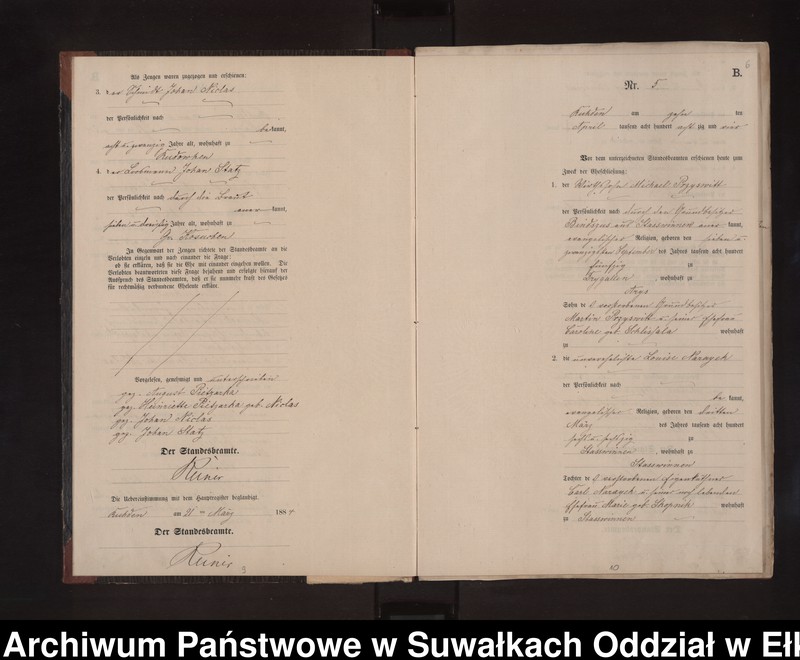 Als Zeugen waren zugezogen und erschienen:
3. der Schmidt Johan Niclas
der Persönlichkeit nach
bekannt,
acht u. zwanzig Jahre alt, wohnhaft zu
4. der Losmann Johan Statz
der Persönlichkeit nach durch die Braut
kannt,
sieben u. dreißig Jahre alt, wohnhaft zu
Gr. Kosuchen
In Gegenwart der Zeugen richtete der Standesbeamte an die
Verlobten einzeln und nach einander die Frage:
ob sie erklären, daß sie die Ehe mit einander eingehen wollen. Die
Verlobten beantworteten diese Frage bejahend und erfolgte hierauf der
Ausspruch des Standesbeamten, daß er sie nunmehr kraft des Gesetzes
für rechtmäßig verbundene Eheleute erkläre.
Vorgelesen, genehmigt und unterschrieben
gez. August Pietzarka
gez. Heinriette Pietzarka geb. Niclas
gez. Johan Niclas
gez. Johan Statz
Der Standesbeamte.
Reiner
Die Uebereinstimmung mit dem Hauptregister beglaubigt.
am 21 ten März 188
Der Standesbeamte.
Reiner
9
6
B.
Nr. 5
am zehn ten
April tausend acht hundert acht zig und vier
Vor dem unterzeichneten Standesbeamten erschienen heute zum
Zweck der Eheschließung:
1. der Wirthssohn Michael
der Persönlichkeit nach durch den Grundbesitzer
aus Stasswinnen kannt,
evangelischer Religion, geboren den sieben u.
zwanzigsten September des Jahres tausend acht hundert
fünfzig zu
Drygallen, wohnhaft zu
Arys
Sohn des verstorbenen Grundbesitzer
Martin u. seiner Ehefrau
Caroline geb. wohnhaft
zu
2. die unverehelichte Louise Naraysch
der Persönlichkeit nach
be kannt,
evangelischer Religion, geboren den dritten
März des Jahres tausend acht hundert
sechs u. sechzig zu
Stasswinnen, wohnhaft zu
Stasswinnen
Tochter des verstorbenen Eigenkäthner
Carl Naraysch u. seiner noch lebenden
Ehefrau Marie geb. wohnhaft
zu Stasswinnen
10
Archiwum Państwowe w Suwałkach Oddział w Ełk